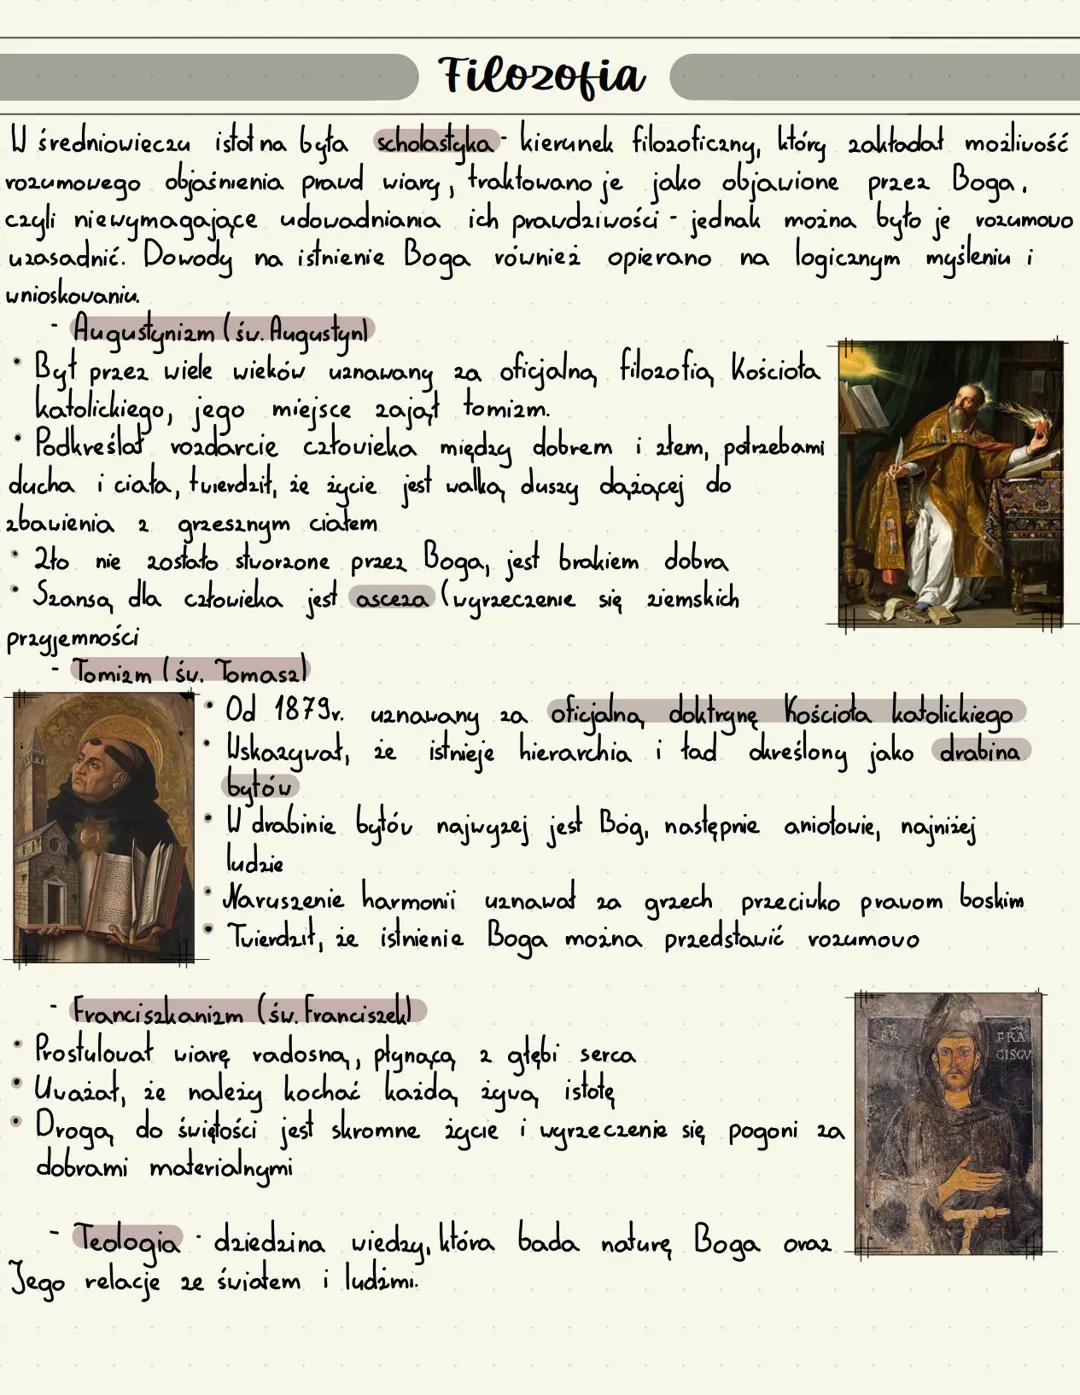 Filozofia
W średniowieczu istotna była scholastyka - kierunek filozoficzny, który zakładał możliwość
rozumowego objaśnienia prawd wiary, traktowano je jako objawione przez Boga,
czyli niewymagające udowadniania ich prawdziwości - jednak można było je rozumowo
uzasadnić. Dowody na istnienie Boga również opierano na logicznym myśleniu i
wnioskowaniu.
- Augustynizm (św. Augustyn)
• Był przez wiele wieków uznawany za oficjalną filozofią Kościoła
katolickiego, jego miejsce zajął tomizm.
• Podkreślał rozdarcie człowieka między dobrem i złem, potrzebami
ducha i ciała, twierdził, że życie jest walką duszy dążącej do
zbawienia z grzesznym ciałem
• Zło nie zostało stworzone przez Boga, jest brakiem dobra
• Szansą dla człowieka jest asceza (wyrzeczenie się ziemskich
przyjemności
- Tomizm (św. Tomasz)
• Od 1879r. uznawany za oficjalną doktrynę Kościoła katolickiego
• Wskazywał, że istnieje hierarchia i ład określony jako drabina
bytów
• W drabinie bytów najwyzej jest Bóg, następnie aniołowie, najniżej
ludzie
• Naruszenie harmonii uznawał za grzech przeciwko prawom boskim
• Twierdził, że istnienie Boga można przedstawić rozumowo
- Franciszkanizm (św. Franciszek)
• Prostulował wiarę radosną, płynącą z głębi serca
FRA
CISCV
• Uważał, że należy kochać każdą żywą istotę
• Drogą do świętości jest skromne życie i wyrzeczenie się pogoni za
dobrami materialnymi
- Teologia - dziedzina wiedzy, która bada naturę Boga oraz
Jego relacje ze światem i ludźmi.